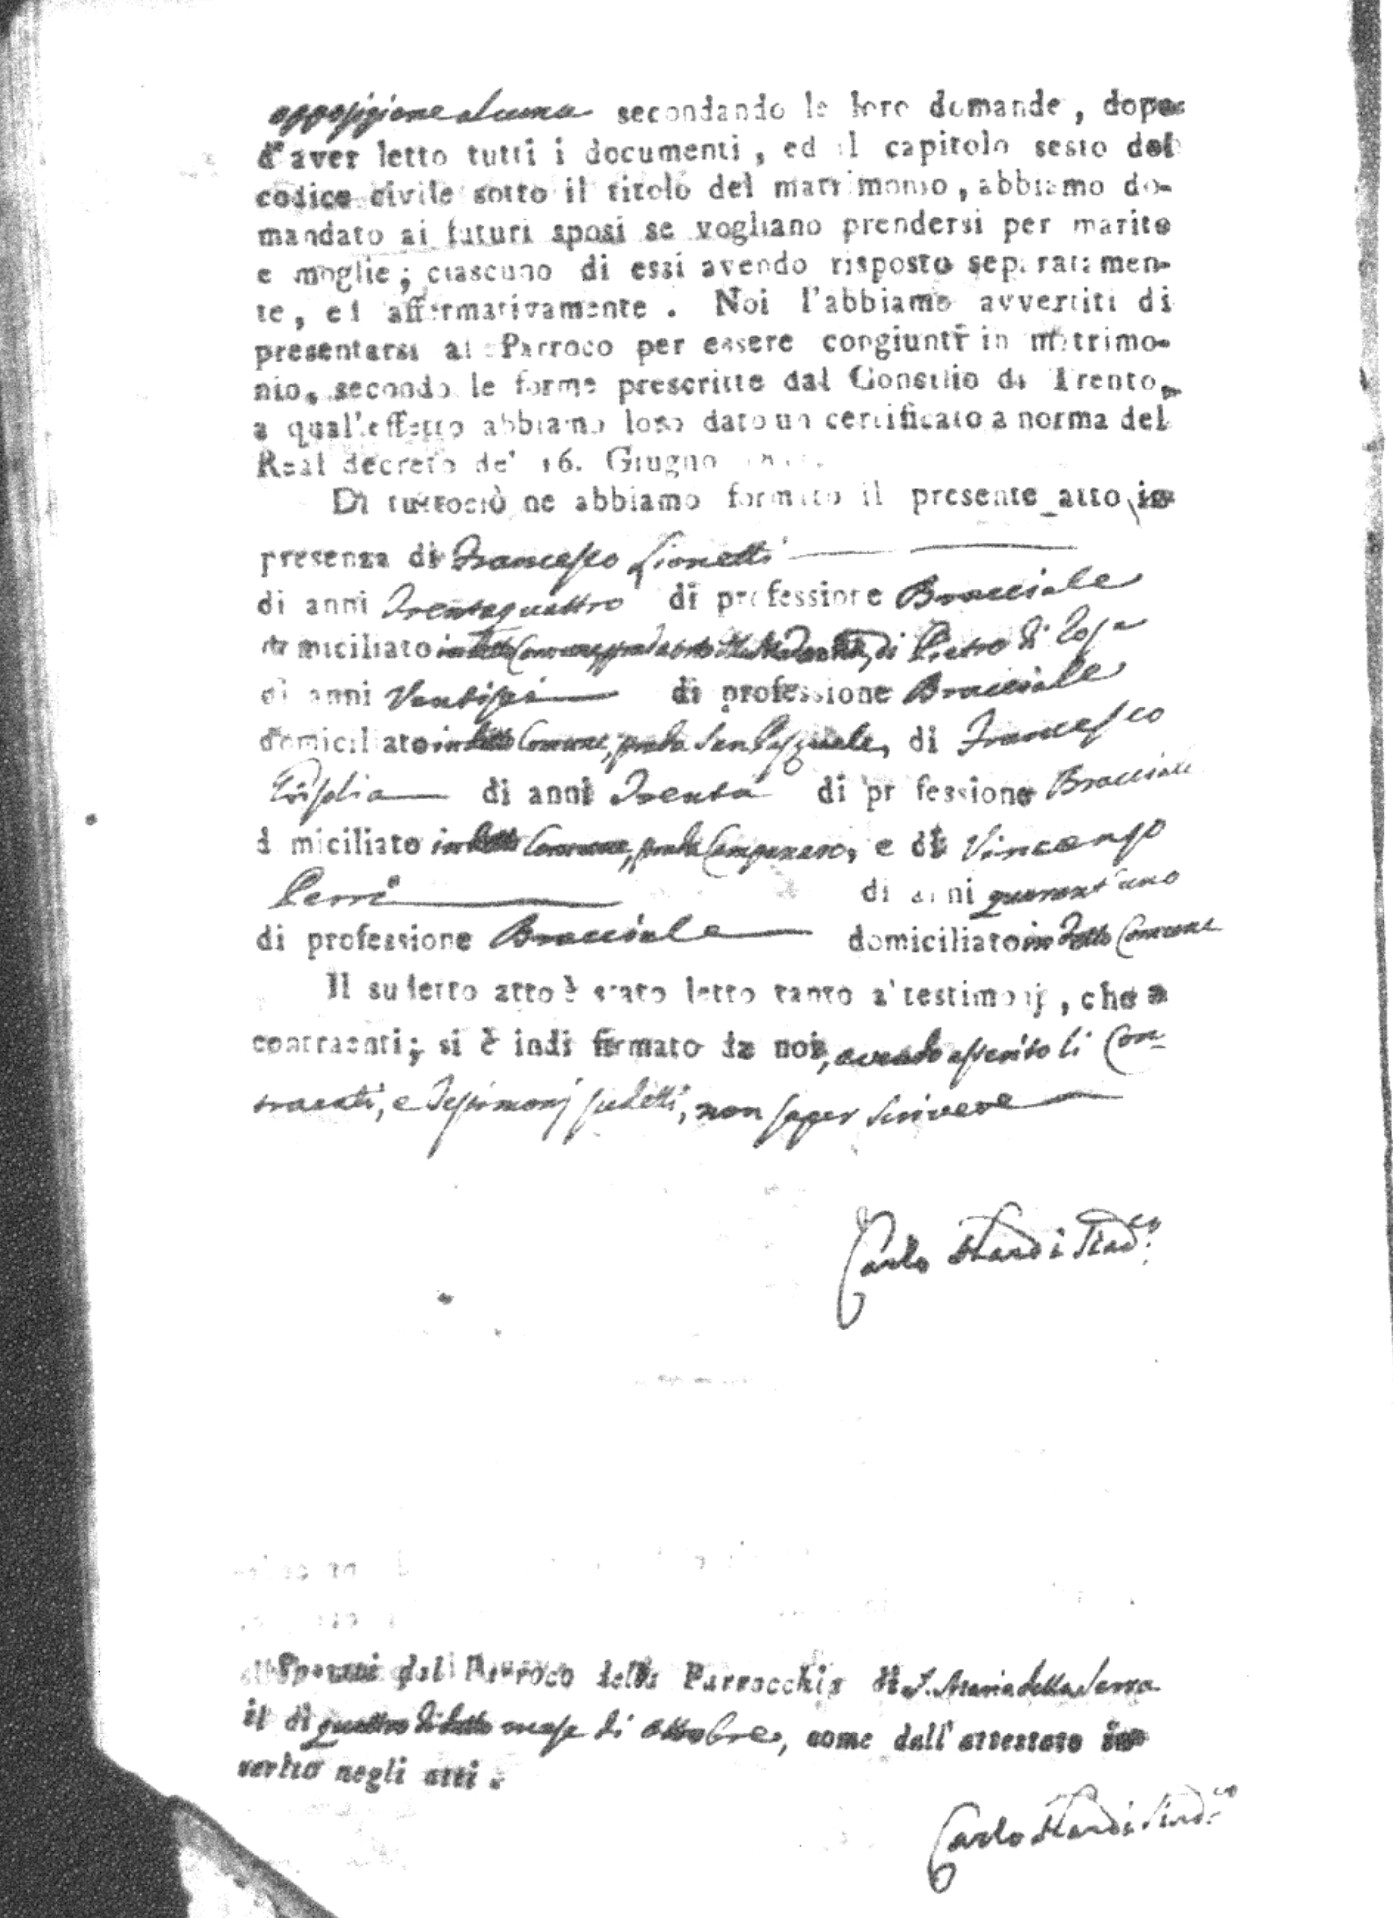 opposizione alcuna secondando le loro domande, dopo
d'aver letto tutti i documenti, ed il capitolo sesto del
codice civile sotto il titolo del matrimonio, abbiamo do-
mandato ai futuri sposi se vogliano prendersi per marito
e moglie; ciascuno di essi avendo risposto separatamen-
te, ed affirmativamente. Noi l'abbiamo avvertiti di
presentarsi al Parroco per essere congiunti in matrimo-
nio, secondo le forme prescritte dal Consilio di Trento,
a qual'effetto abbiamo loro dato un certificato a norma del
Real decreto de' 16. Giugno
Di tuttociò ne abbiamo formato il presente atto in
presenza di Francesco Lionetti
di anni Trentaquattro di professione Bracciale
domiciliato in detto Comune, di Pietro di Tosa
di anni Ventisei di professione Bracciale
domiciliato in detto Comune, strada San Pasquale, di Francesco
di anni Trenta di professione Bracciale
domiciliato in detto Comune, strada Campanaro, e di Vincenzo
Perri di anni quarant'uno
di professione Bracciale domiciliato in detto Comune
Il sudetto atto è stato letto tanto a' testimonj, che a
contraenti; si è indi firmato da noi, avendo asserito li Con-
traenti, e Testimonj sudetti, non saper scrivere
Carlo Sind.co
Sposati dal Parroco della Parrocchia di S. Maria della Serra
il dì quattro di detto mese di Ottobre, come dall'attestato in-
serito negli atti.
Carlo Sind.co